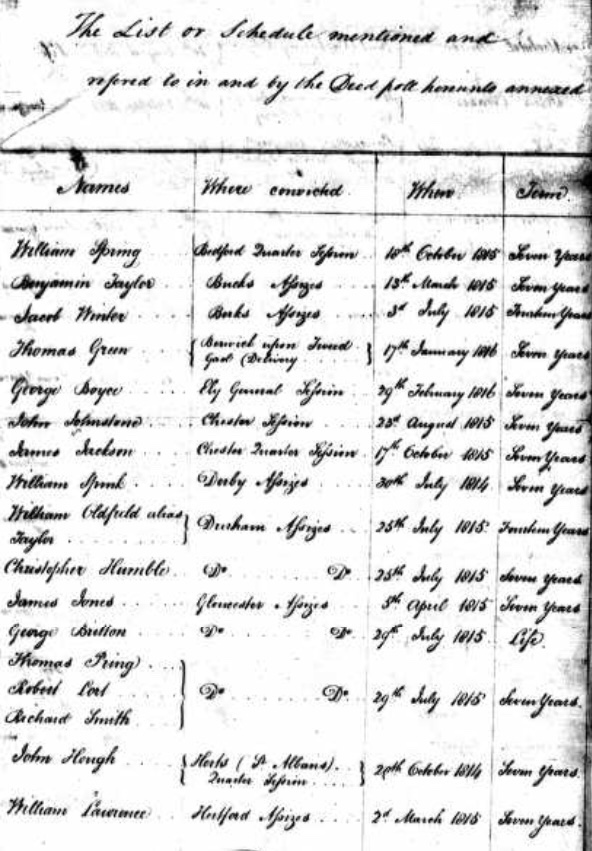 The List or Schedule mentioned and
refered to in and by the Deed poll hereunto annexed
Names Where convicted When Term
William Spring Bedford Quarter Session 18th October 1815 Seven Years
Benjamin Taylor Bucks Assizes 13th March 1815 Seven Years
Jacob Winter Berks Assizes 3d July 1815 Fourteen Years
Thomas Green Berwick upon Tweed Gaol Delivery 17th January 1816 Seven Years
George Boyce Ely General Session 29th February 1816 Seven Years
John Johnstone Chester Session 23d August 1815 Seven Years
James Jackson Chester Quarter Session 17th October 1815 Seven Years
William Spunk Derby Assizes 30th July 1814 Seven Years
William Oldfield alias
Taylor Durham Assizes 25th July 1815 Fourteen Years
Christopher Humble Do Do 25th July 1815 Seven Years
James Jones Gloucester Assizes 5th April 1815 Seven Years
George Britton Do Do 29th July 1815 Life
Thomas Pring
Robert Lort Do Do 29th July 1815 Seven Years
Richard Smith
John Hough Herts (St Albans) Quarter Session 20th October 1814 Seven Years
William Lawrence Hertford Assizes 2d March 1815 Seven Years